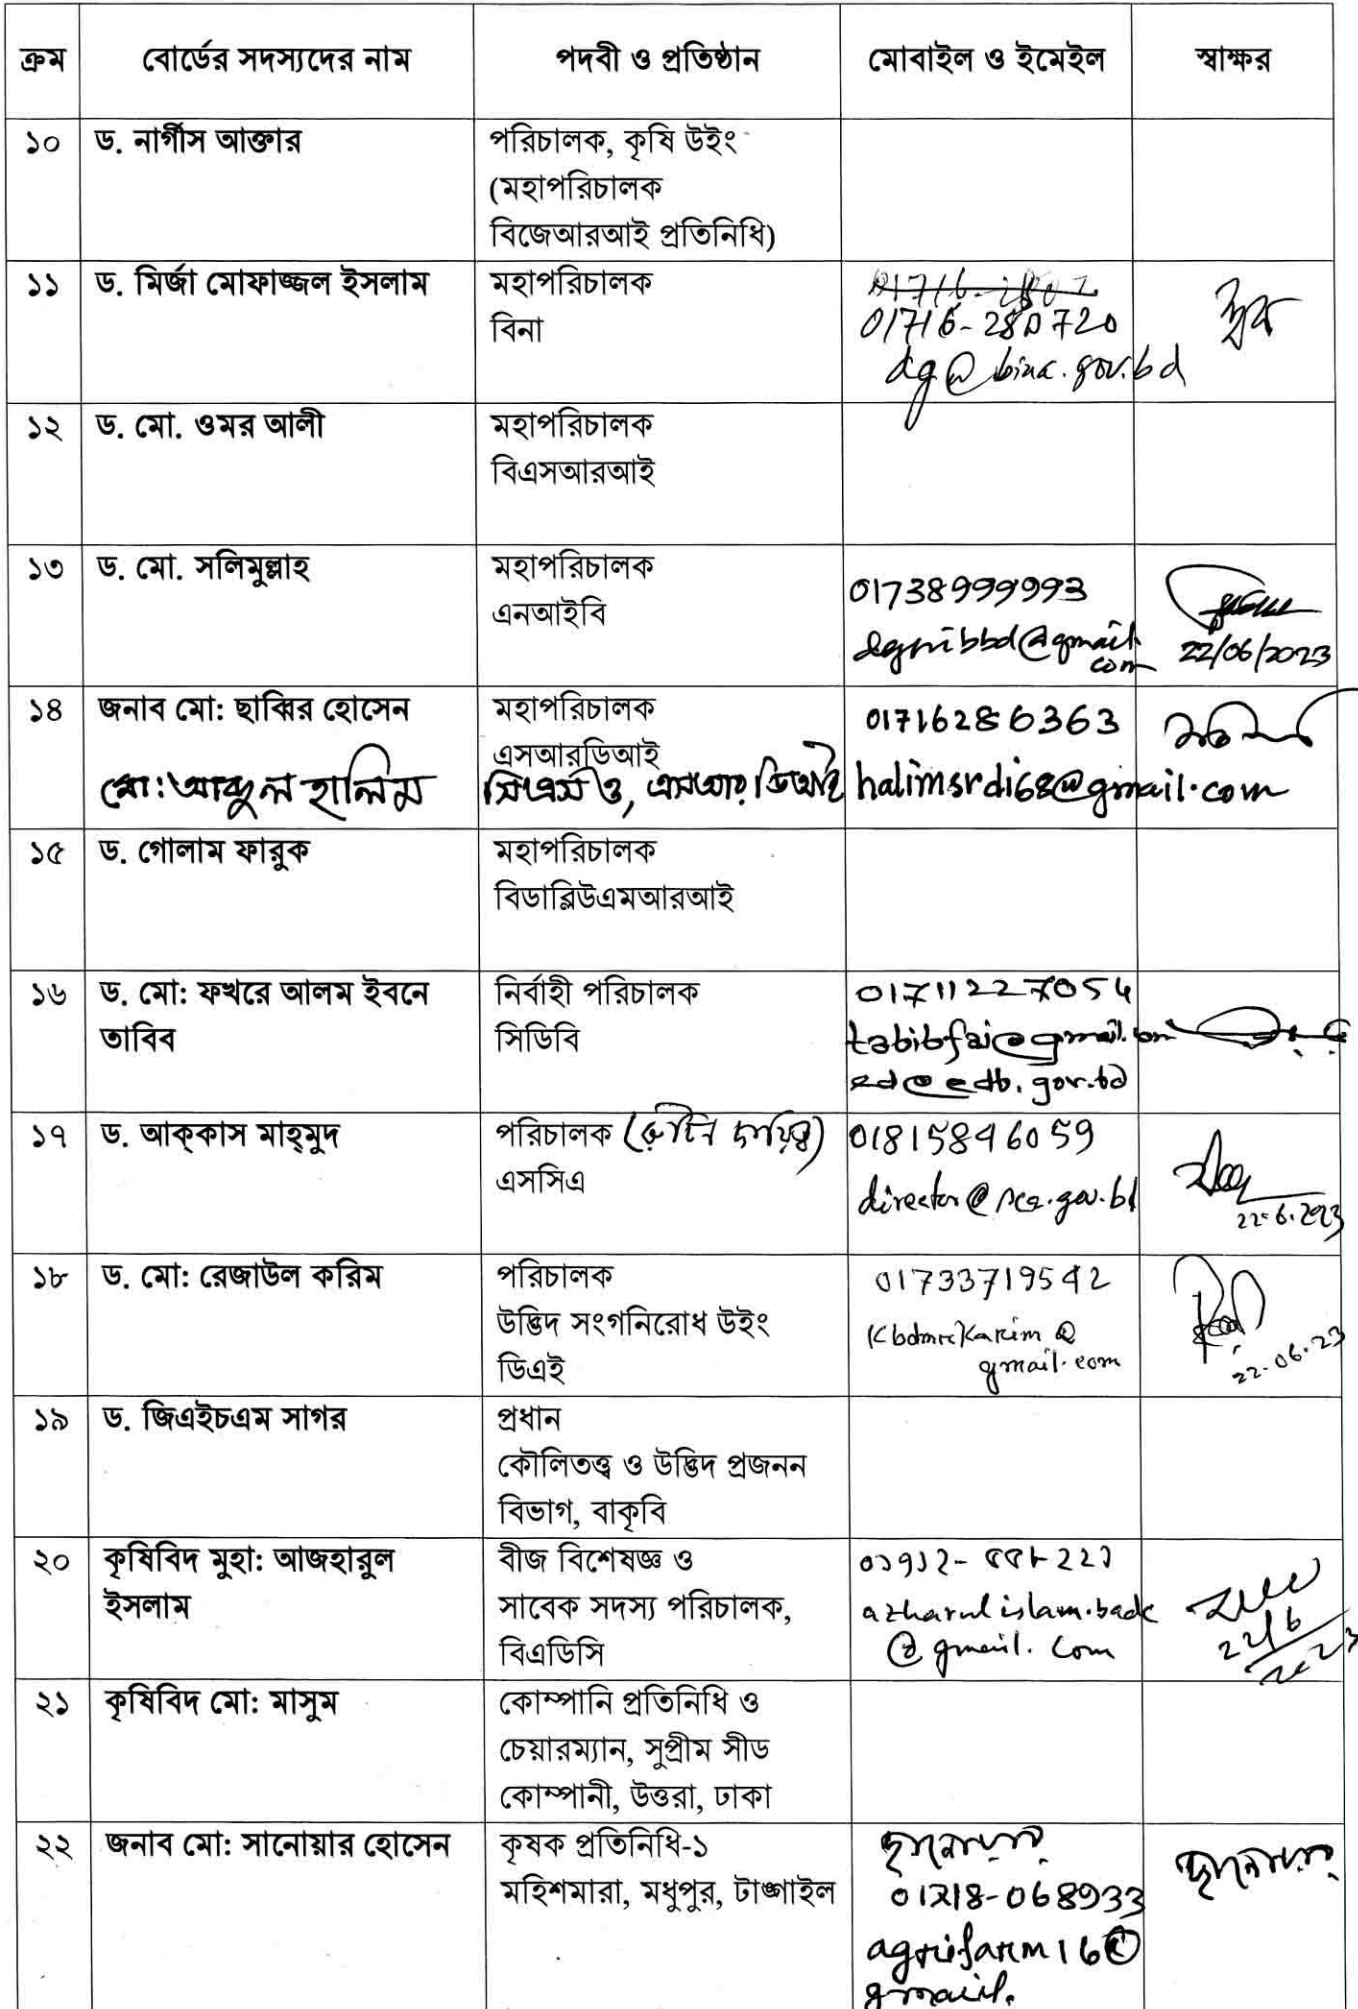 ক্রম বোর্ডের সদস্যদের নাম পদবী ও প্রতিষ্ঠান মোবাইল ও ইমেইল স্বাক্ষর
১০ ড. নার্গীস আক্তার পরিচালক, কৃষি উইং
(মহাপরিচালক
বিজেআরআই প্রতিনিধি)
১১ ড. মির্জা মোফাজ্জল ইসলাম মহাপরিচালক
বিনা 01716-280720
dg@bina.gov.bd
১২ ড. মো. ওমর আলী মহাপরিচালক
বিএসআরআই
১৩ ড. মো. সলিমুল্লাহ মহাপরিচালক 01738999993
এনআইবি dgnibbd@gmail.
com 22/06/2023
১৪ জনাব মো: ছাব্বির হোসেন মহাপরিচালক 01716286363
এসআরডিআই
মো: আব্দুল হালিম সিএসও, এসআরডিআই halimsrdi68@gmail.com
১৫ ড. গোলাম ফারুক মহাপরিচালক
বিডাব্লিউএমআরআই
১৬ ড. মো: ফখরে আলম ইবনে নির্বাহী পরিচালক 01711227054
তাবিব সিডিবি tabibfai@gmail.com
ed@cdb.gov.bd
১৭ ড. আক্‌কাস মাহ্‌মুদ পরিচালক (রুটিন দায়িত্ব) 01815846059
এসসিএ director@sca.gov.bd
22.6.2023
১৮ ড. মো: রেজাউল করিম পরিচালক 01733719542
উদ্ভিদ সংগনিরোধ উইং
ডিএই gmail.com 22.06.23
১৯ ড. জিএইচএম সাগর প্রধান
কৌলিতত্ত্ব ও উদ্ভিদ প্রজনন
বিভাগ, বাকৃবি
২০ কৃষিবিদ মুহা: আজহারুল বীজ বিশেষজ্ঞ ও
ইসলাম সাবেক সদস্য পরিচালক, azharulislam.badc
বিএডিসি @gmail.com 22/6/2023
২১ কৃষিবিদ মো: মাসুম কোম্পানি প্রতিনিধি ও
চেয়ারম্যান, সুপ্রীম সীড
কোম্পানী, উত্তরা, ঢাকা
২২ জনাব মো: সানোয়ার হোসেন কৃষক প্রতিনিধি-১ ছানোয়ার ছানোয়ার
মহিশমারা, মধুপুর, টাঙ্গাইল 01718-068933
agrifarm16@
gmail.